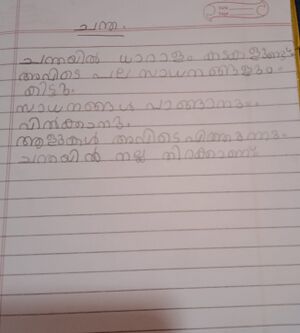 ചന്ത.
ചന്തയിൽ ധാരാളം കടകളുണ്ട്
അവിടെ പല സാധനങ്ങളും
കിട്ടും.
സാധനങ്ങൾ വാങ്ങാനും
വിൽക്കാനും.
ആളുകൾ അവിടെ എത്തുന്നു.
ചന്തയിൽ നല്ല തിരക്കാണ്